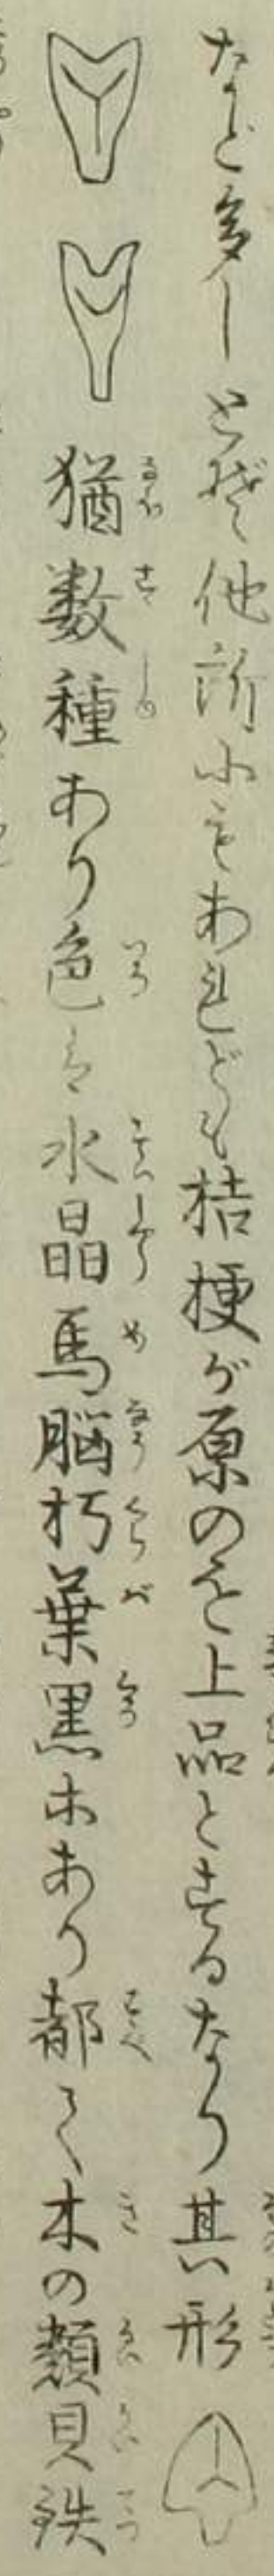 など多しとぞ他所にもあれども桔梗が原のを上品とするなり其形
猶数種あり色は水晶馬脳朽葉黒木あり都て木の類貝鉄